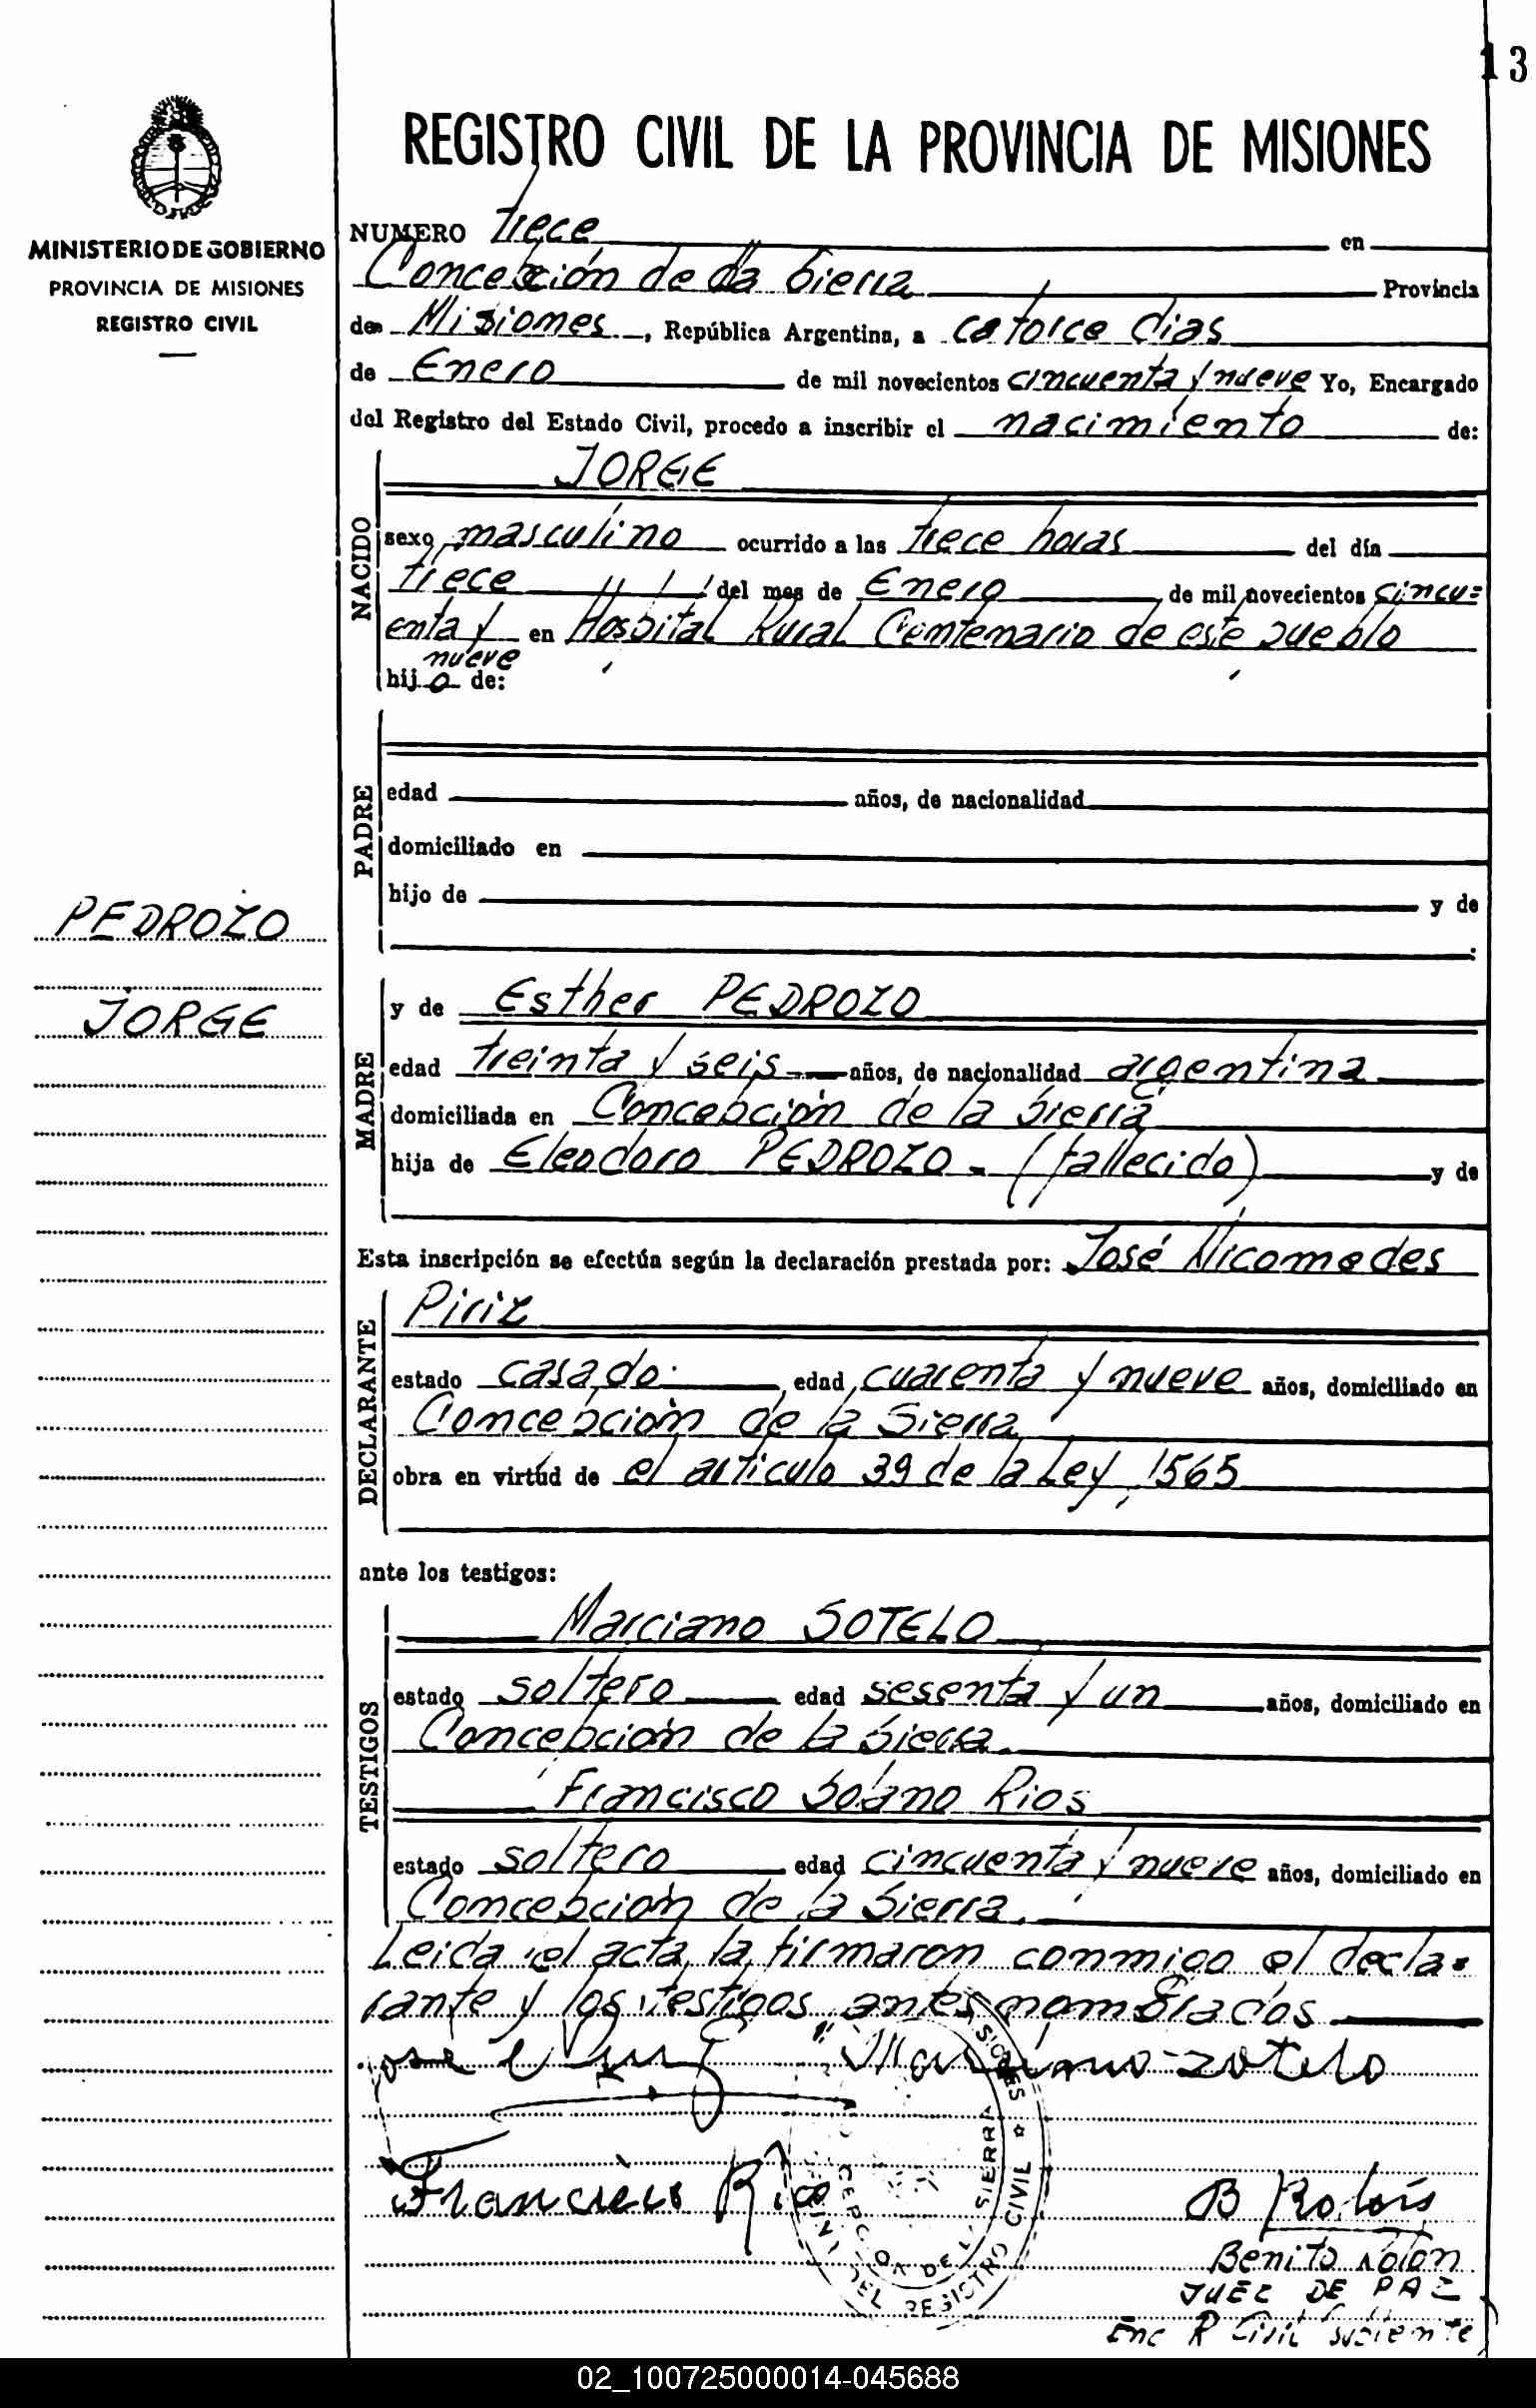 13
REGISTRO CIVIL DE LA PROVINCIA DE MISIONES
MINISTERIO DE GOBIERNO
PROVINCIA DE MISIONES
REGISTRO CIVIL
NUMERO trece en
Concepción de la Sierra Provincia
de Misiones, República Argentina, a catorce dias
de Enero de mil novecientos cincuenta y nueve Yo, Encargado
del Registro del Estado Civil, procedo a inscribir el nacimiento de:
NACIDO
JORGE
sexo masculino ocurrido a las trece horas del día
trece del mes de Enero de mil novecientos cincu=
enta y nueve en Hospital Rural Centenario de este pueblo
hijo de:
PADRE
edad años, de nacionalidad
domiciliado en
hijo de y de
PEDROZO
JORGE
MADRE
y de Esther PEDROZO
edad treinta y seis años, de nacionalidad argentina
domiciliada en Concepción de la Sierra
hija de Eleodoro PEDROZO - (fallecido) y de
Esta inscripción se efectúa según la declaración prestada por: José Nicomedes
DECLARANTE
Piriz
estado casado edad cuarenta y nueve años, domiciliado en
Concepción de la Sierra
obra en virtúd de el articulo 39 de la Ley 1565
ante los testigos:
TESTIGOS
Marciano SOTELO
estado soltero edad sesenta y un años, domiciliado en
Concepción de la Sierra.
Francisco Solano Rios
estado soltero edad cincuenta y nueve años, domiciliado en
Concepción de la Sierra.
Leida el acta, la firmaron conmigo el decla-
rante y los testigos antes nombrados
Jose Marciano zotelo
Francisco Rios
REGISTRO CIVIL
DE SIERRA
B Rolón
Benito Rolón
JUEZ DE PAZ
Enc R Civil
02_100725000014-045688